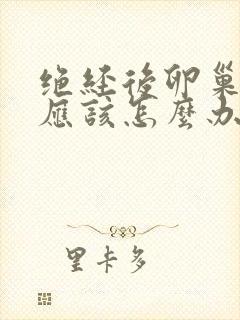 绝经後卵巢
應該怎麼办
里卡多